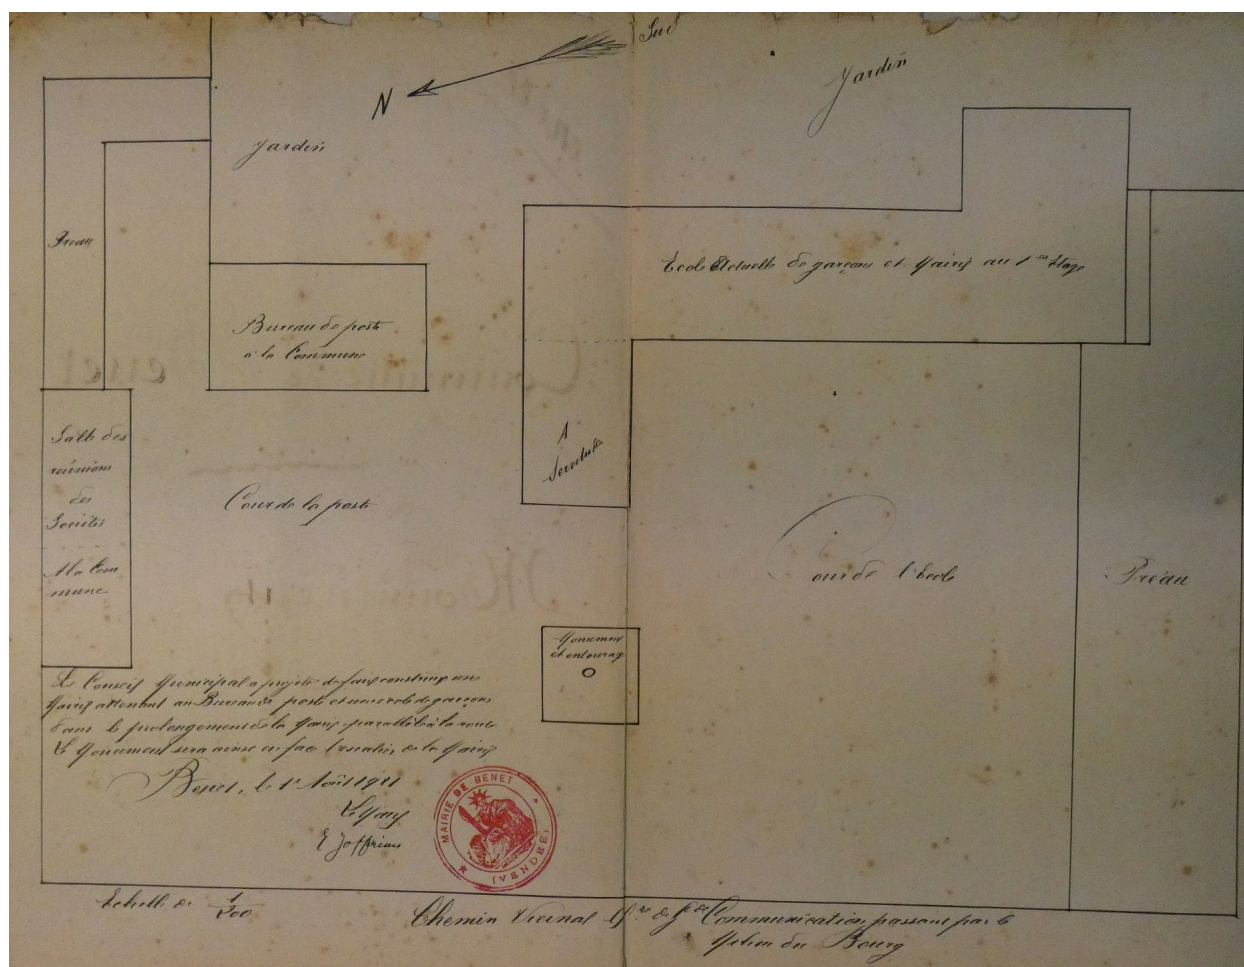 Sud
N
Jardin
Jardin
Préau
Bureau de poste
à la Commune
Ecole Actuelle de garçons et Mairie au 1er Etage
Salle des
réunions
des
Sociétés
A la Com
mune
Cour de la poste
A
Servitude
Cour de l'école
Préau
Monument
et entourage
Le Conseil Municipal a projeté de faire construire une
Mairie attenant au Bureau de poste et une école de garçons
dans le prolongement de la Mairie, parallèle à la route.
Le Monument sera ainsi en face l'escalier de la Mairie
Benet, le 1er Août 1921
Le Maire
E Joffrion
MAIRIE DE BENET
(VENDÉE)
Echelle de 1/200
Chemin Vicinal de Gde Communication passant par le
Milieu du Bourg